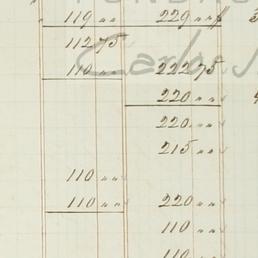 119 " " 229 " "
112 75
110 " " 222 75
220 " "
220 " "
215 " "
110 " "
110 " " 220 " "
110 " "
110 " "